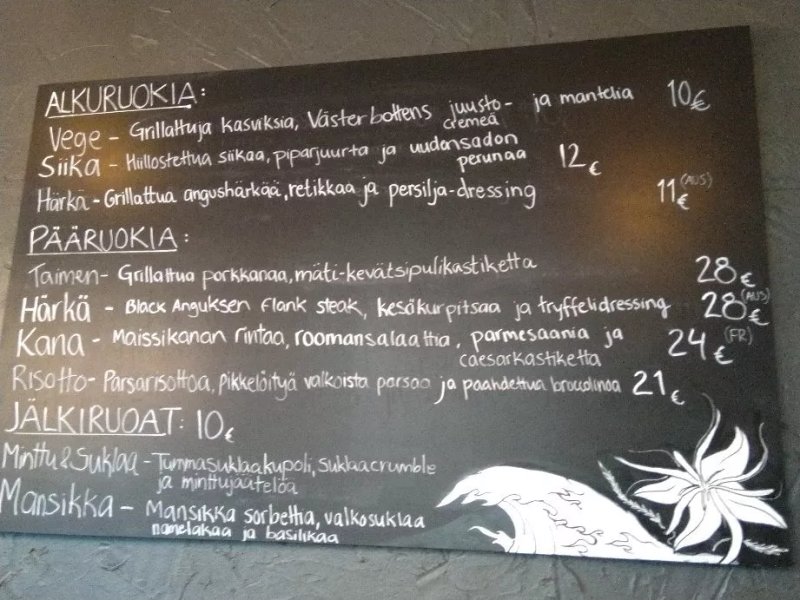 ALKURUOKIA:
Vege - Grillattuja kasviksia, Västerbottens juusto- ja mantelia 10€
cremeä
Siika - Hiillostettua siikaa, piparjuurta ja uudensadon 12€
perunaa
Härkä - Grillattua angushärkää, retikkaa ja persilja-dressing 11€ (AUS)
PÄÄRUOKIA:
Taimen - Grillattua porkkanaa, mäti-kevätsipulikastiketta 28€
Härkä - Black Anguksen Flank steak, kesäkurpitsaa ja tryffelidressing 28€ (AUS)
Kana - Maissikanan rintaa, roomansalaattia, parmesaania ja 24€ (FR)
caesarkastiketta
Risotto - Parsarisottoa, pikkelöityä valkoista parsaa ja paahdettua broudinoa 21€
JÄLKIRUOAT: 10€
Minttu & Suklaa - Tummasuklaakupoli, suklaacrumble
ja minttujäätelöä
Mansikka - Mansikka sorbettia, valkosuklaa
namelakaa ja basilikaa